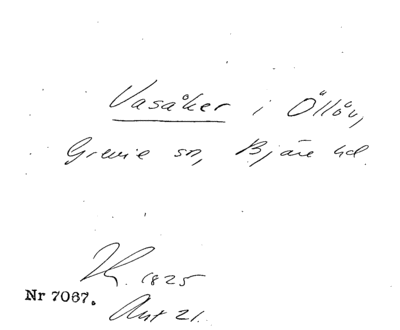 Vasåker i Öllöv,
Grevie sn, Bjäre hd.
1825
Nr 7067.
Ant 21.